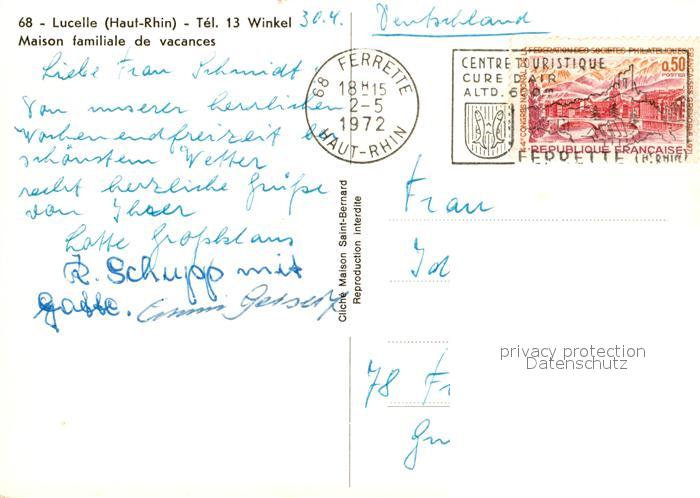 68 - Lucelle (Haut-Rhin) - Tél. 13 Winkel
Maison familiale de vacances
30.4.
Deutschland
Liebe Frau Schmidt
Von unserer herrlichen
Wochenendfreizeit b
schönstem Wetter
recht herzliche Grüße
von Ihrer
Lotte Großklaus
R. Schupp mit
Gatte.
68 FERRETTE
18H15
2-5
1972
HAUT-RHIN
CENTRE TOURISTIQUE
CURE D'AIR
ALTD.
FERRETTE (H.RHIN)
0,50
POSTES
REPUBLIQUE FRANÇAISE
Cliché Maison Saint-Bernard
Reproduction interdite
Frau
78 Fr
privacy protection
Datenschutz